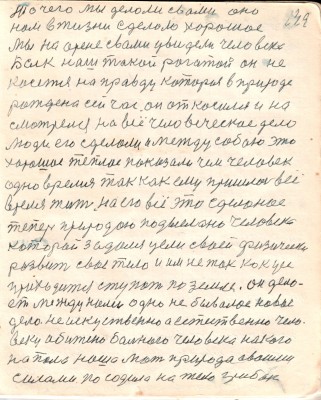 229
То чего мы делали свами оно
нам в жизни сделало хорошае
Мы на арене свами увидели человека
Бык наш такой рогатой он не
косется на правду которая в природе
рождена сей час. он откосился и на
смотрелся на всё человеческае дело
Люди его сделали и между собою это
хорошае теплае показали чем человек
одно время так как ему пришлос всё
время жить. на его всё это сделоное
тепер природаю подвиглано человека
которай задался цели своей физически
развит свае тело и им не так как усе
приходится ступат по земле. он дела-
ет между ними одно не бывалае новае
дело не искуственно а естественно чело-
веку обижено больного человека накого
напала наша мат природа своими
силами посодила на тело грибок